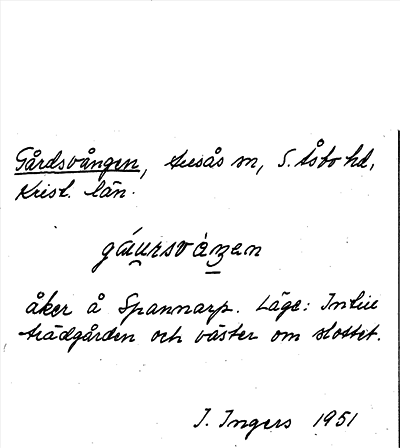 Gårdsvången, Ausås sn, S. Åsbo hd,
Krist. län.
gáu̯rsvàṉen
åker å Spannarp. Läge: Intill
trädgården och väster om slottet.
I. Ingers 1951